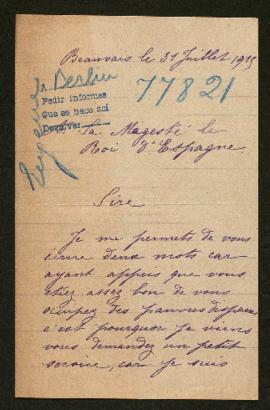 Beauvais le 31 Juillet 1915
A Berlin
77821
Pedir informes
Que se hace así
Devolver
Urgente
A Sa Magesté le
Roi d'Espagne
Sire
Je me permets de vous
écrire deux mots car
ayant appris que vous
étiez assez bon de vous
occupez des pauvres disparus
c'est pourquoi je viens
vous demandez un petit
service, car je suis